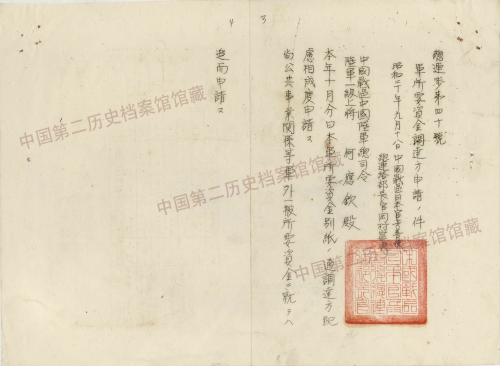 總連參第四十號
軍所要資金調達方申請ノ件
昭和二十年九月十八日 中國戰區日本官兵善後
總連絡部長官岡村寧次
中國戰區中國陸軍總司令
陸軍一級上將 何應欽殿
本年十月分日本軍所要資金別紙ノ通調達方配
慮相成度申請ス
尚公共事業關係等軍外一般所要資金ニ就テハ
3
4
追而申請ス
中国第二历史档案馆馆藏
中国第二历史档案馆馆藏
中国第二历史档案馆馆藏